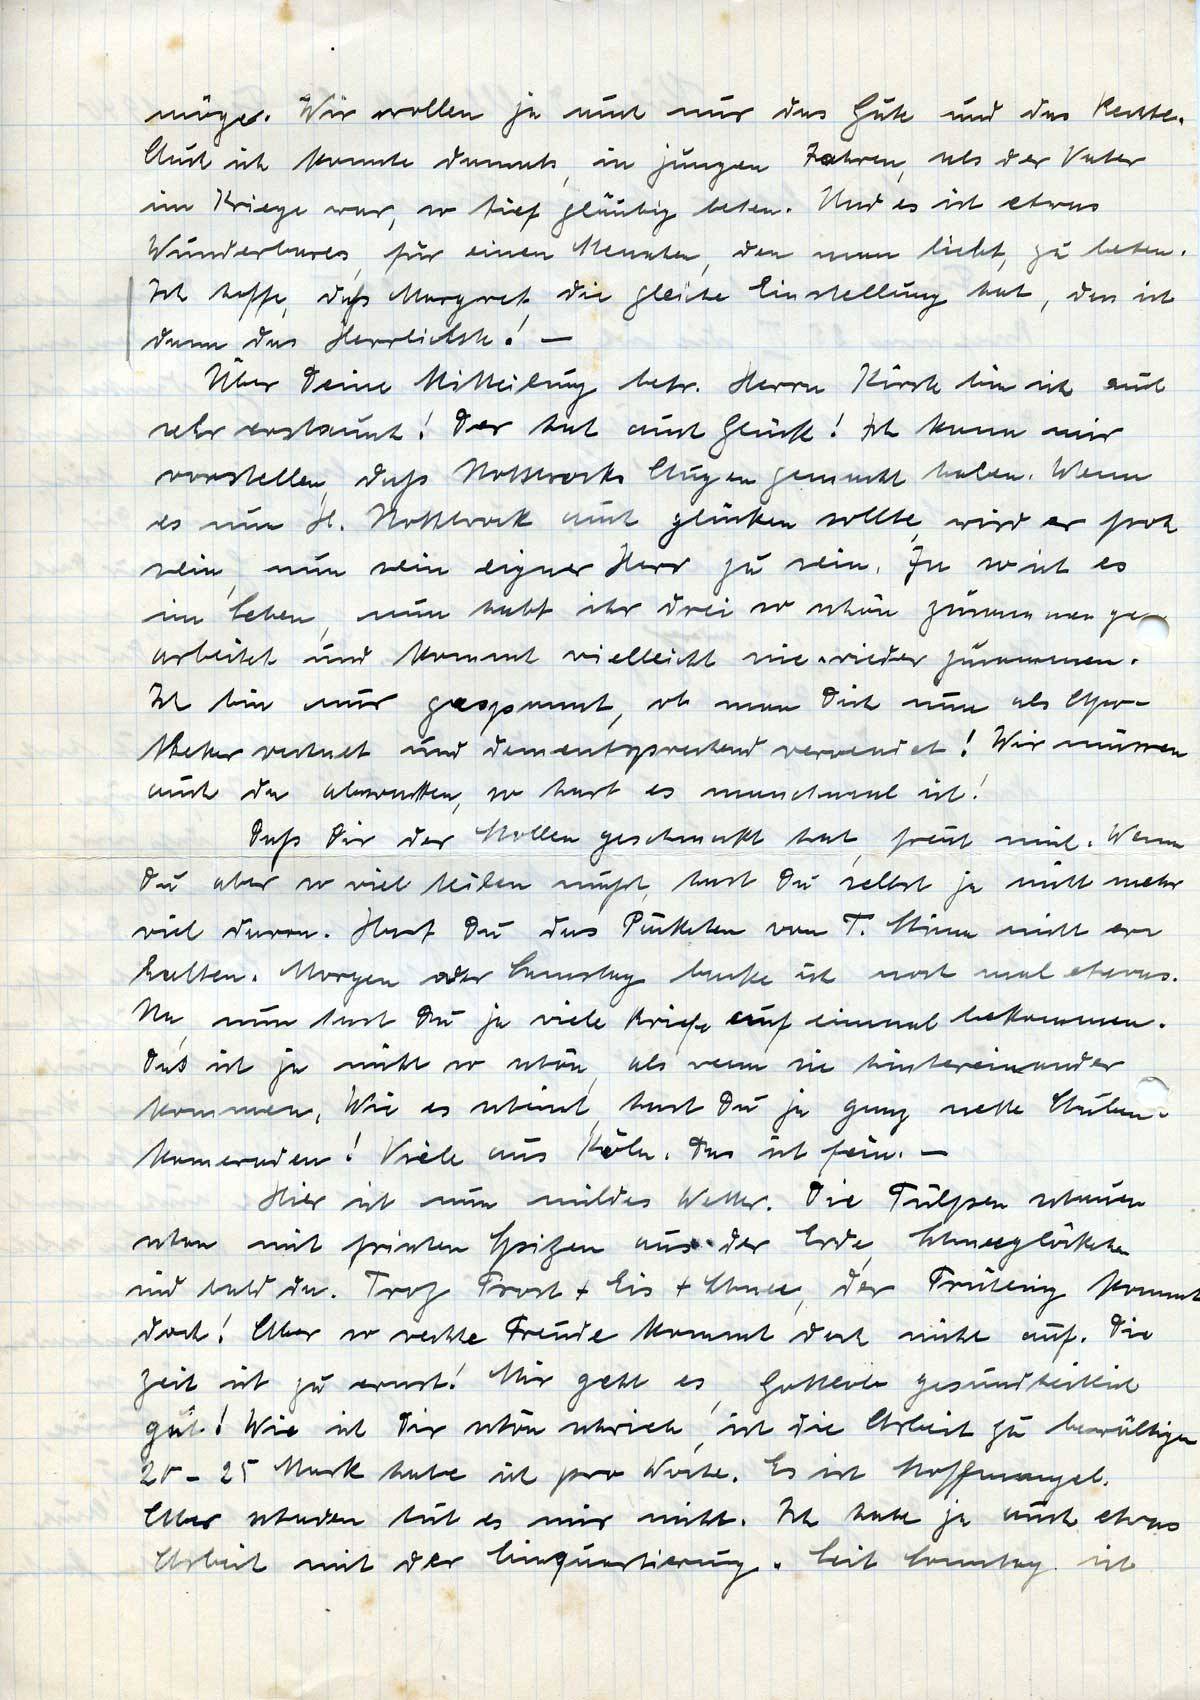 möge. Wir wollen ja auch nur das Gute und das Rechte.
Auch ich konnte damals, in jungen Jahren, als der Vater
im Kriege war, so tief gläubig beten. Und es ist etwas
Wunderbares, für einen Menschen, den man liebt, zu beten.
Ich hoffe, daß Margret, die gleiche Einstellung hat, das ist
dann das Herrlichste! —
Über Deine Mitteilung betr. Herrn Kürsk bin ich auch
sehr erstaunt! Der hat auch Glück! Ich kann mir
vorstellen, daß Nottbrocks Augen gemacht haben. Wenn
es nun H. Nottbrock auch glücken sollte, wird er froh
sein, nun sein eigner Herr zu sein. Ja so ist es
im Leben, nun habt ihr drei so schön zusammen ge
arbeitet und kommt vielleicht nie wieder zusammen.
Ich bin nur gespannt, ob man Dich nun als Apo-
theker rechnet und dementsprechend verwendet! Wir müssen
auch da abwarten, so hart es manchmal ist!
Daß Dir der Stollen geschmeckt hat, freut mich. Wenn
Du aber so viel teilen mußt, hast Du selbst ja nicht mehr
viel davon. Hast Du das Päckchen von T. Stina nicht er
halten. Morgen oder Samstag backe ich noch mal etwas.
Na, nun hast Du ja viele Briefe auf einmal bekommen.
Das ist ja nicht so schön, als wenn sie hintereinander
kommen. Wie es scheint, hast Du ja ganz nette Stuben-
kameraden! Viele aus Köln. Das ist fein. —
Hier ist nun mildes Wetter. Die Tulpen schauen
schon mit frischen Spitzen aus der Erde, Schneeglöckchen
sind bald da. Trotz Frost + Eis + Schnee, der Frühling kommt
doch! Aber so rechte Freude kommt doch nicht auf. Die
Zeit ist zu ernst! Mir geht es, Gottlob gesundheitlich
gut! Wie ich Dir schon schrieb, ist die Arbeit zu bewältigen
20 – 25 Mark habe ich pro Woche. Es ist Stoffmangel.
Aber schaden tut es mir nicht. Ich habe ja auch etwas
Arbeit mit der Einquartierung. Seit Sonntag ist